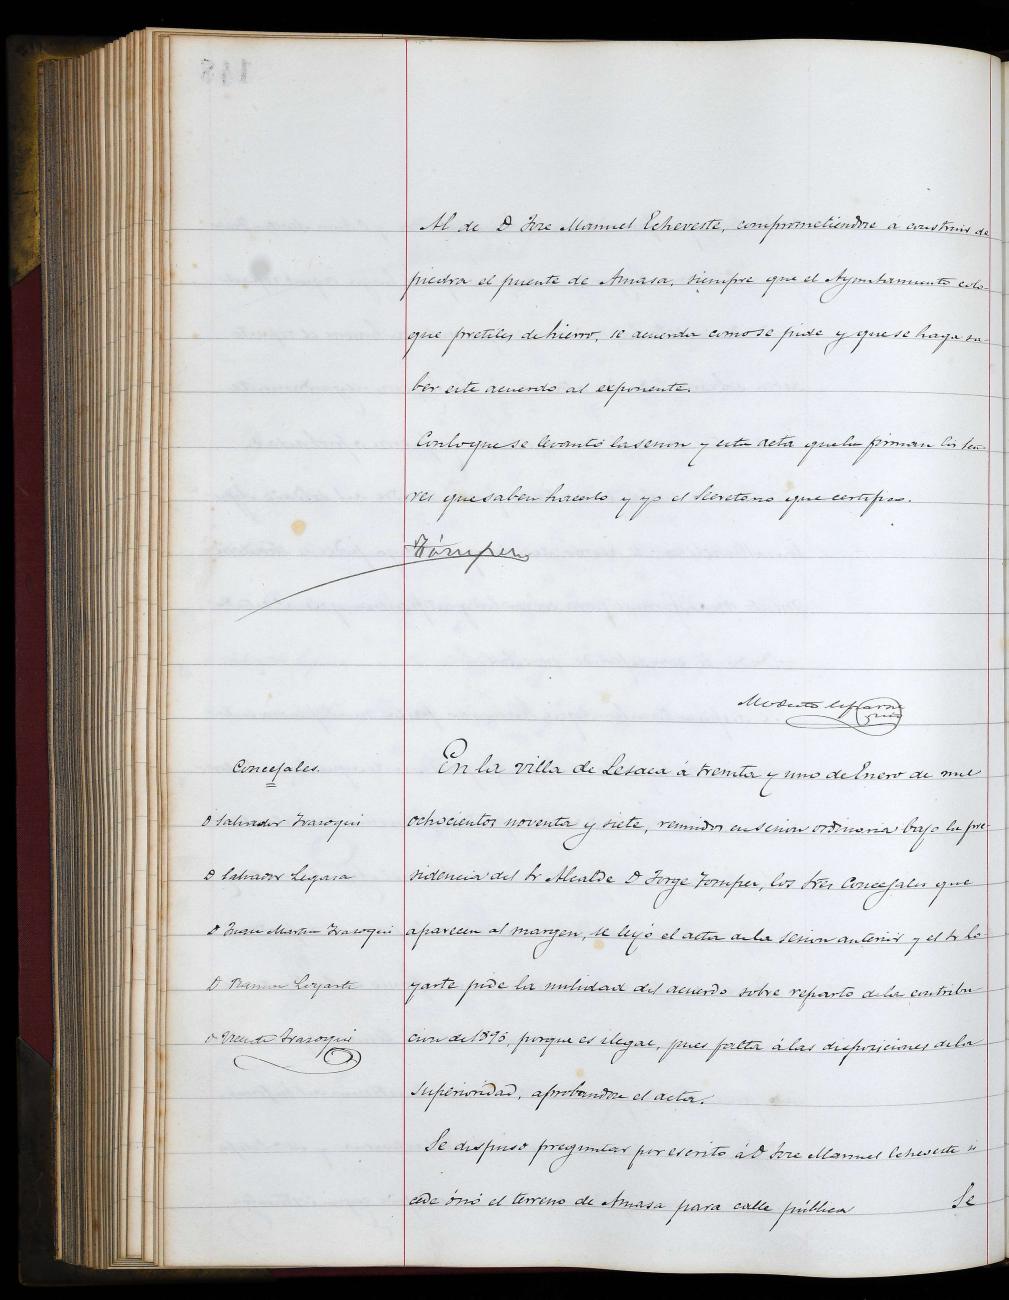 Al de D Jose Manuel Echeveste, comprometiendose a construir de
piedra el puente de Amasa, siempre que el Ayuntamiento colo-
que pretiles de hierro, se acuerda como se pide y que se haga sa-
ber este acuerdo al exponente.
Con lo que se levantó la sesion y esta acta que la firman los seño-
res que saben hacerlo y yo el Secretario que certifico.
Modesto
En la villa de Lesaca á treinta y uno de Enero de mil
ochocientos noventa y siete, reunidos en sesion ordinaria bajo la pre-
sidencia del Sr Alcalde D Jorge Tompes, los tres Concejales que
aparecen al margen, se leyó el acta de la sesion anterior y el Sr Lo-
yarte pide la nulidad del acuerdo sobre reparto de la contribu-
cion de 1896, porque es ilegal, pues falta á las disposiciones de la
superioridad, aprobandose el acta.
Se dispuso preguntar por escrito á D Jose Manuel Echeveste si
cede ó nó el terreno de Amasa para calle pública Se
Concejales.
D Salvador Irazoqui
D Salvador Legasa
D Juan Martin Irazoqui
D Ramon Loyarte
D Vicente Irazoqui